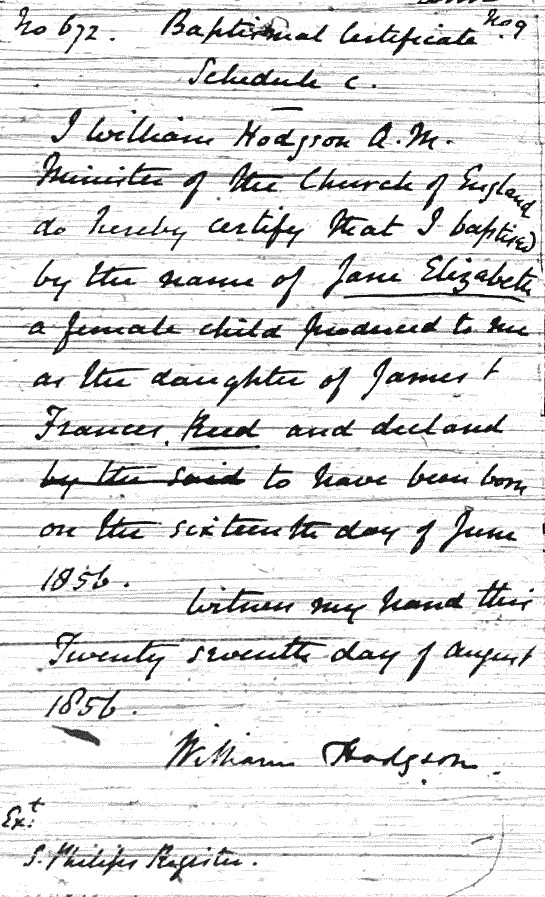 No 672. Baptismal Certificate No. 9
Schedule C.
I William Hodgson A.M.
Minister of the Church of England
do hereby certify that I baptised
by the name of Jane Elizabeth
a female child produced to me
as the daughter of James &
Frances Reed and declared
by the said to have been born
on the sixteenth day of June
1856.
Witness my hand this
Twenty seventh day of August
1856.
William Hodgson.
Ext:
S. Philips Register.